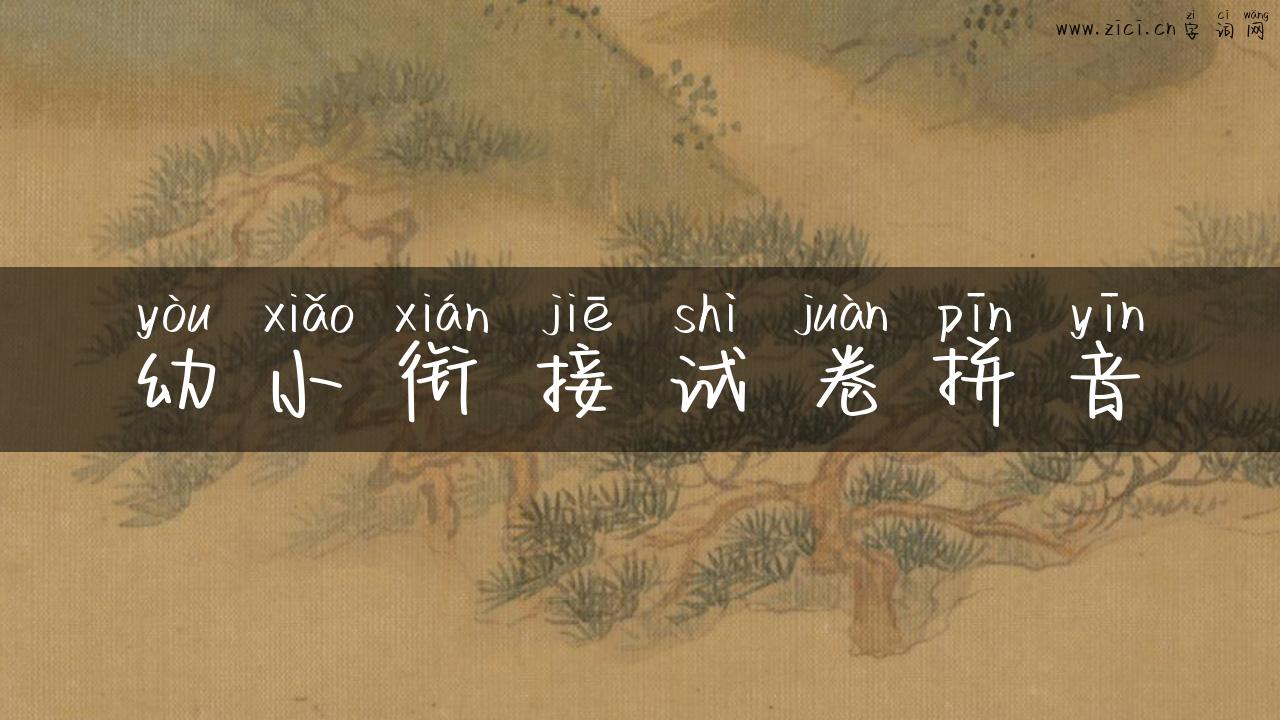 zì cí wǎng
www.zici.cn 字词网
yòu xiǎo xián jiē shì juàn pīn yīn
幼小衔接试卷拼音